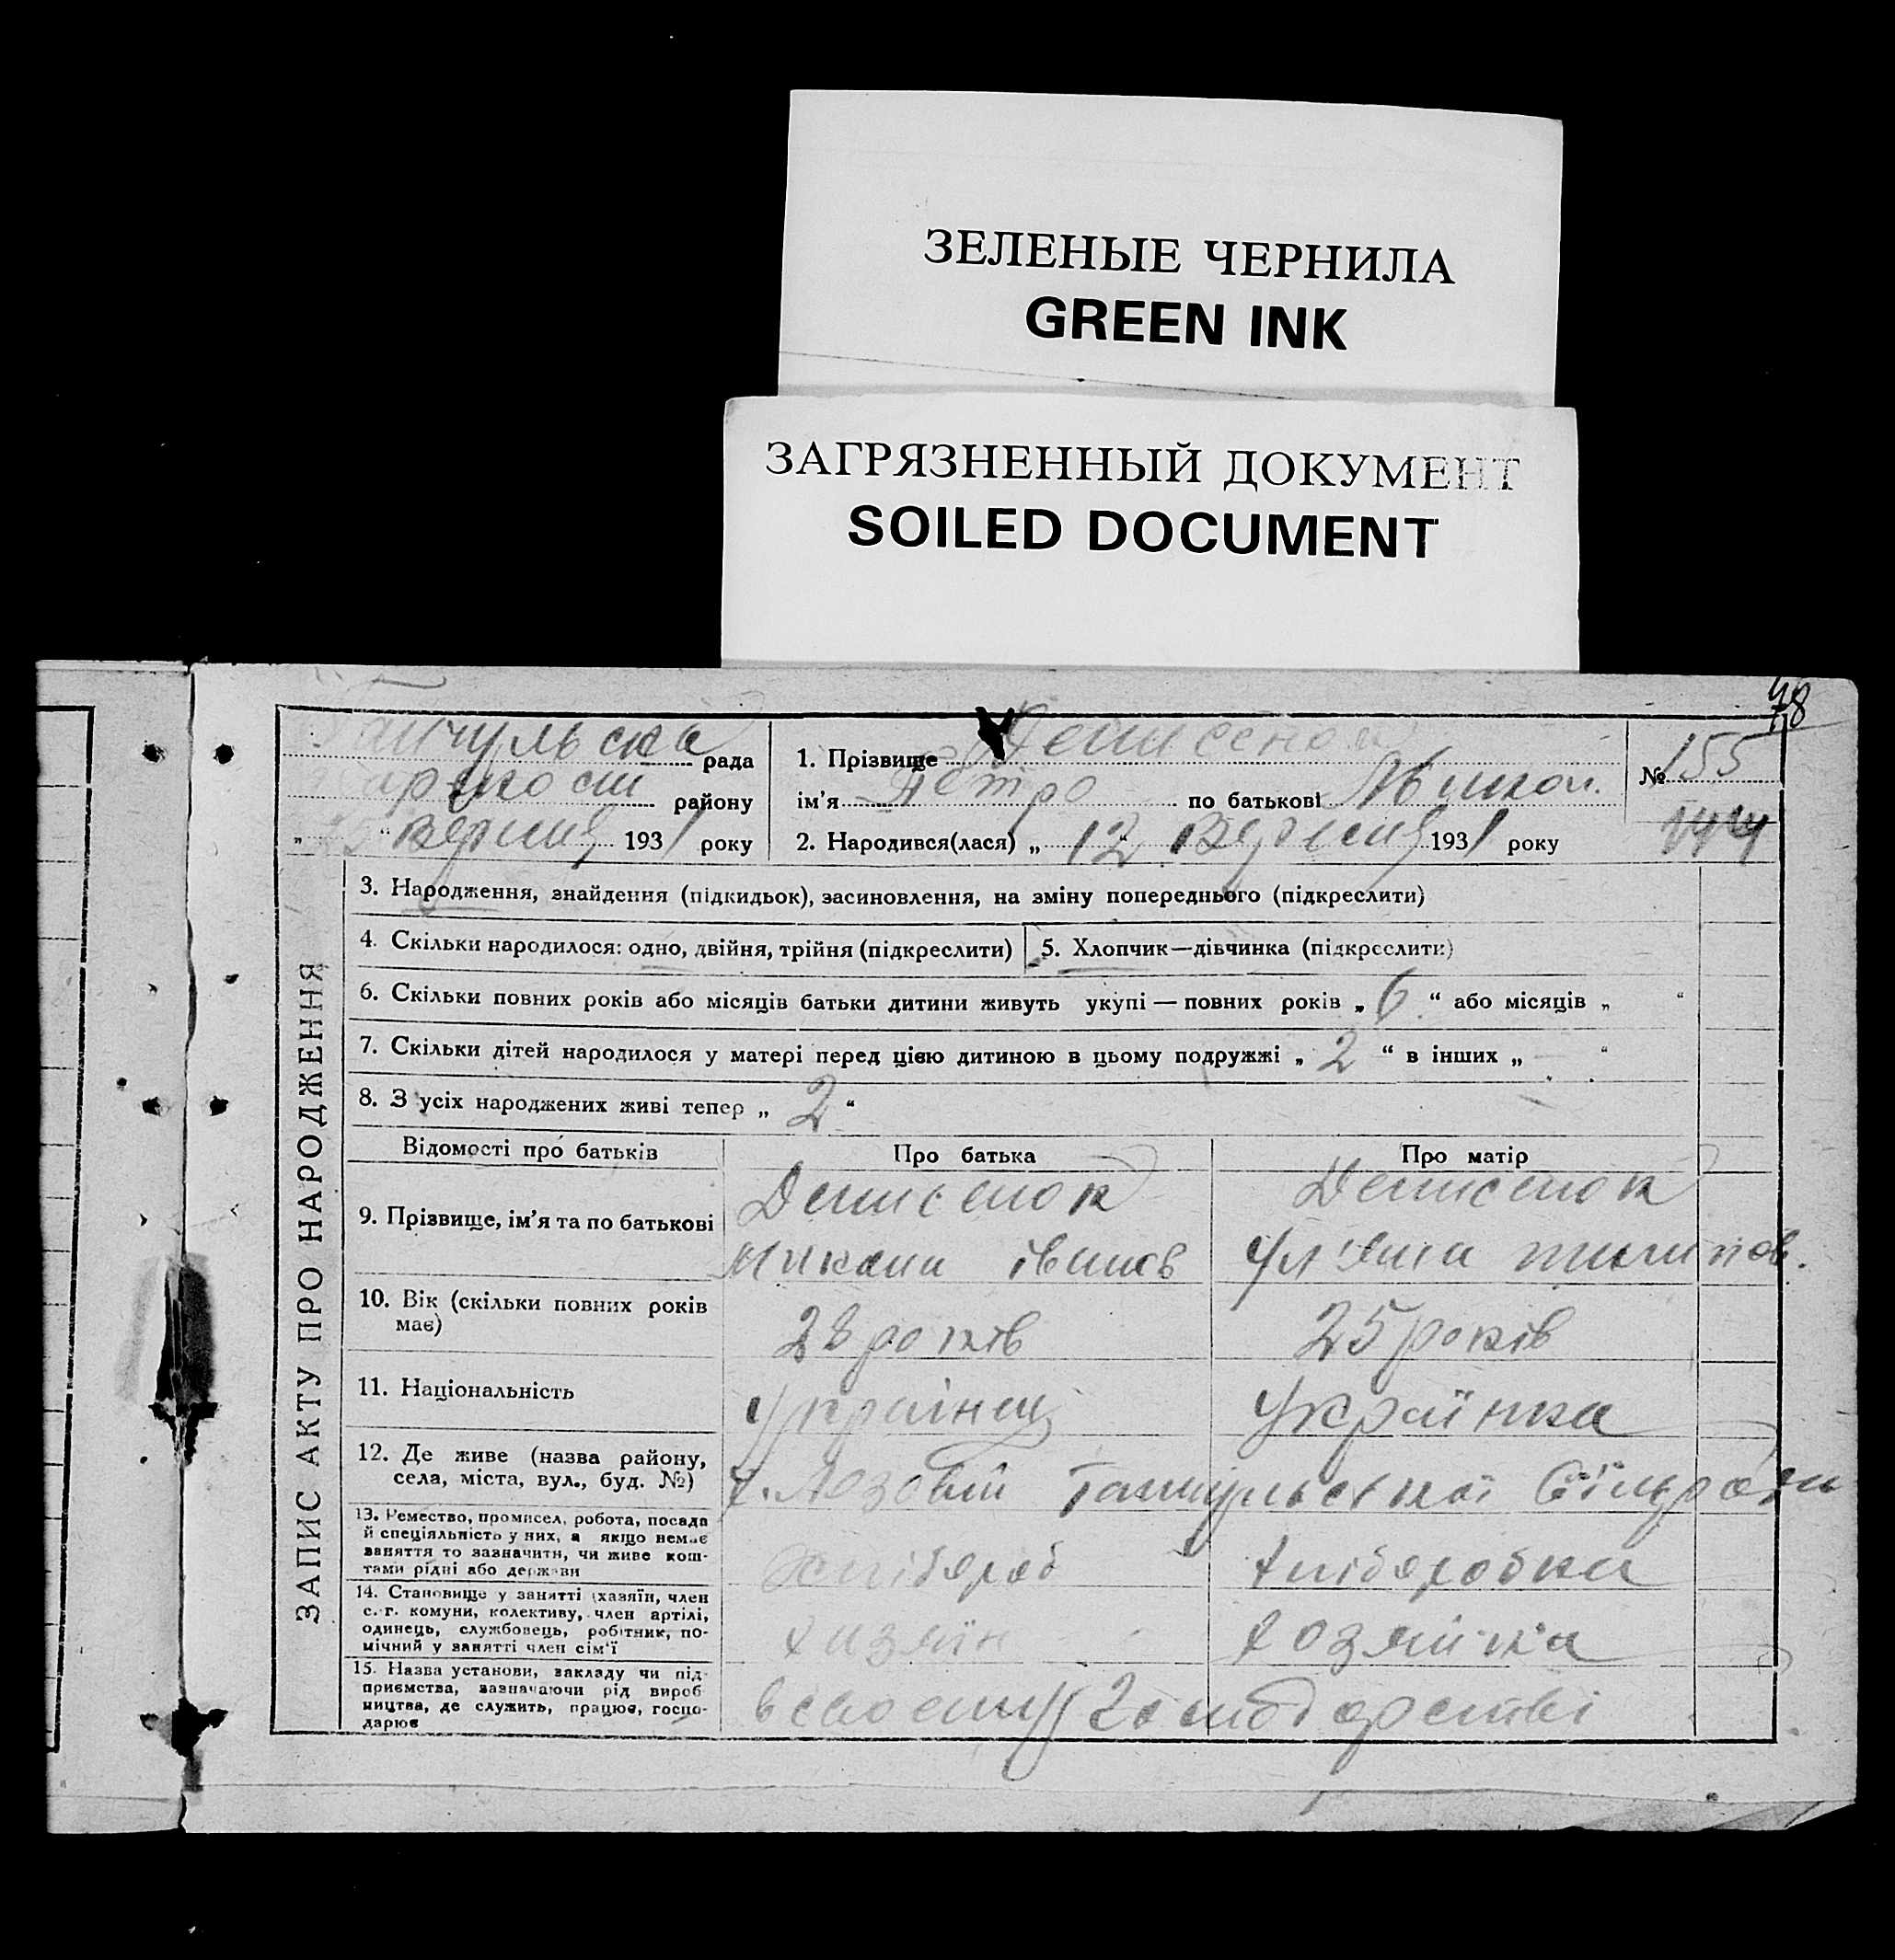 ЗЕЛЕНЫЕ ЧЕРНИЛА
GREEN INK
ЗАГРЯЗНЕННЫЙ ДОКУМЕНТ
SOILED DOCUMENT
78
ЗАПИС АКТУ ПРО НАРОДЖЕННЯ
Гайчульська рада
району
„ “ вересня 1931 року
1. Прізвище Денисенок
ім’я Петро по батькові Микол.
2. Народився(лася) „ 12 “ Вересня 1931 року
№ 155
3. Народження, знайдення (підкидьок), засиновлення, на зміну попереднього (підкреслити)
4. Скільки народилося: одно, двійня, трійня (підкреслити) 5. Хлопчик—дівчинка (підкреслити)
6. Скільки повних років або місяців батьки дитини живуть укупі — повних років „ 6 “ або місяців „ “
7. Скільки дітей народилося у матері перед цією дитиною в цьому подружжі „ 2 “ в інших „ - “
8. З усіх народжених живі тепер „ 2 “
Відомості про батьків Про батька Про матір
9. Прізвище, ім’я та по батькові Денисенок Денисенок
Микола Іванов Ул'яна пилипов.
10. Вік (скільки повних років має) 28 років 25 років
11. Національність Українец Українка
12. Де живе (назва району, села, міста, вул., буд. №) х. Лозовий Гайчульської Сільради
13. Ремество, промисел, робота, посада й спеціяльність у них, а якщо немає заняття то зазначити, чи живе коштами рідні або держави хлібороб хліборобка
14. Становище у занятті (хазяїн, член с.-г. комуни, колективу, член артілі, одинець, службовець, робітник, помічний у занятті член сім’ї хазяїн хозяйка
15. Назва установи, закладу чи підприємства, зазначаючи рід виробництва, де служить, працює, господарює в своему господарстві